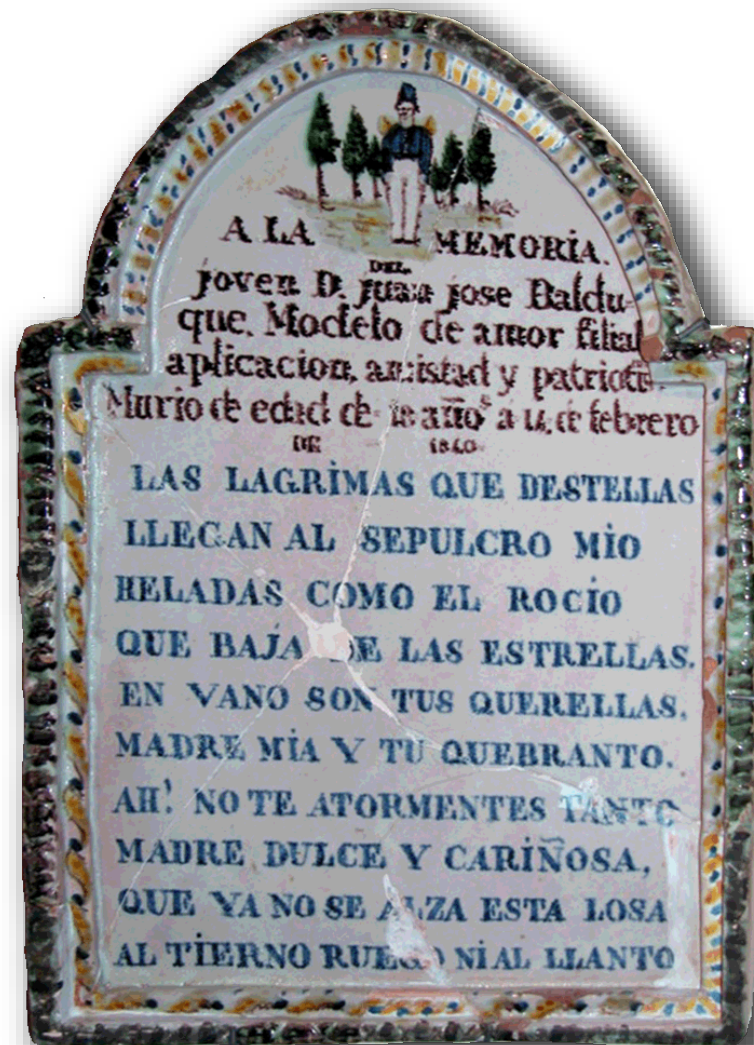 A LA MEMORIA.
DEL
joven D. Juan jose Baldu-
que. Modelo de amor filial
aplicacion, amistad y patrioti
Murio de edad de 18 años a 14 de febrero
DE 1840
LAS LAGRIMAS QUE DESTELLAS
LLEGAN AL SEPULCRO MIO
HELADAS COMO EL ROCIO
QUE BAJA DE LAS ESTRELLAS.
EN VANO SON TUS QUERELLAS,
MADRE MIA Y TU QUEBRANTO.
AH! NO TE ATORMENTES TANTO
MADRE DULCE Y CARIÑOSA,
QUE YA NO SE ALZA ESTA LOSA
AL TIERNO RUEGO NI AL LLANTO